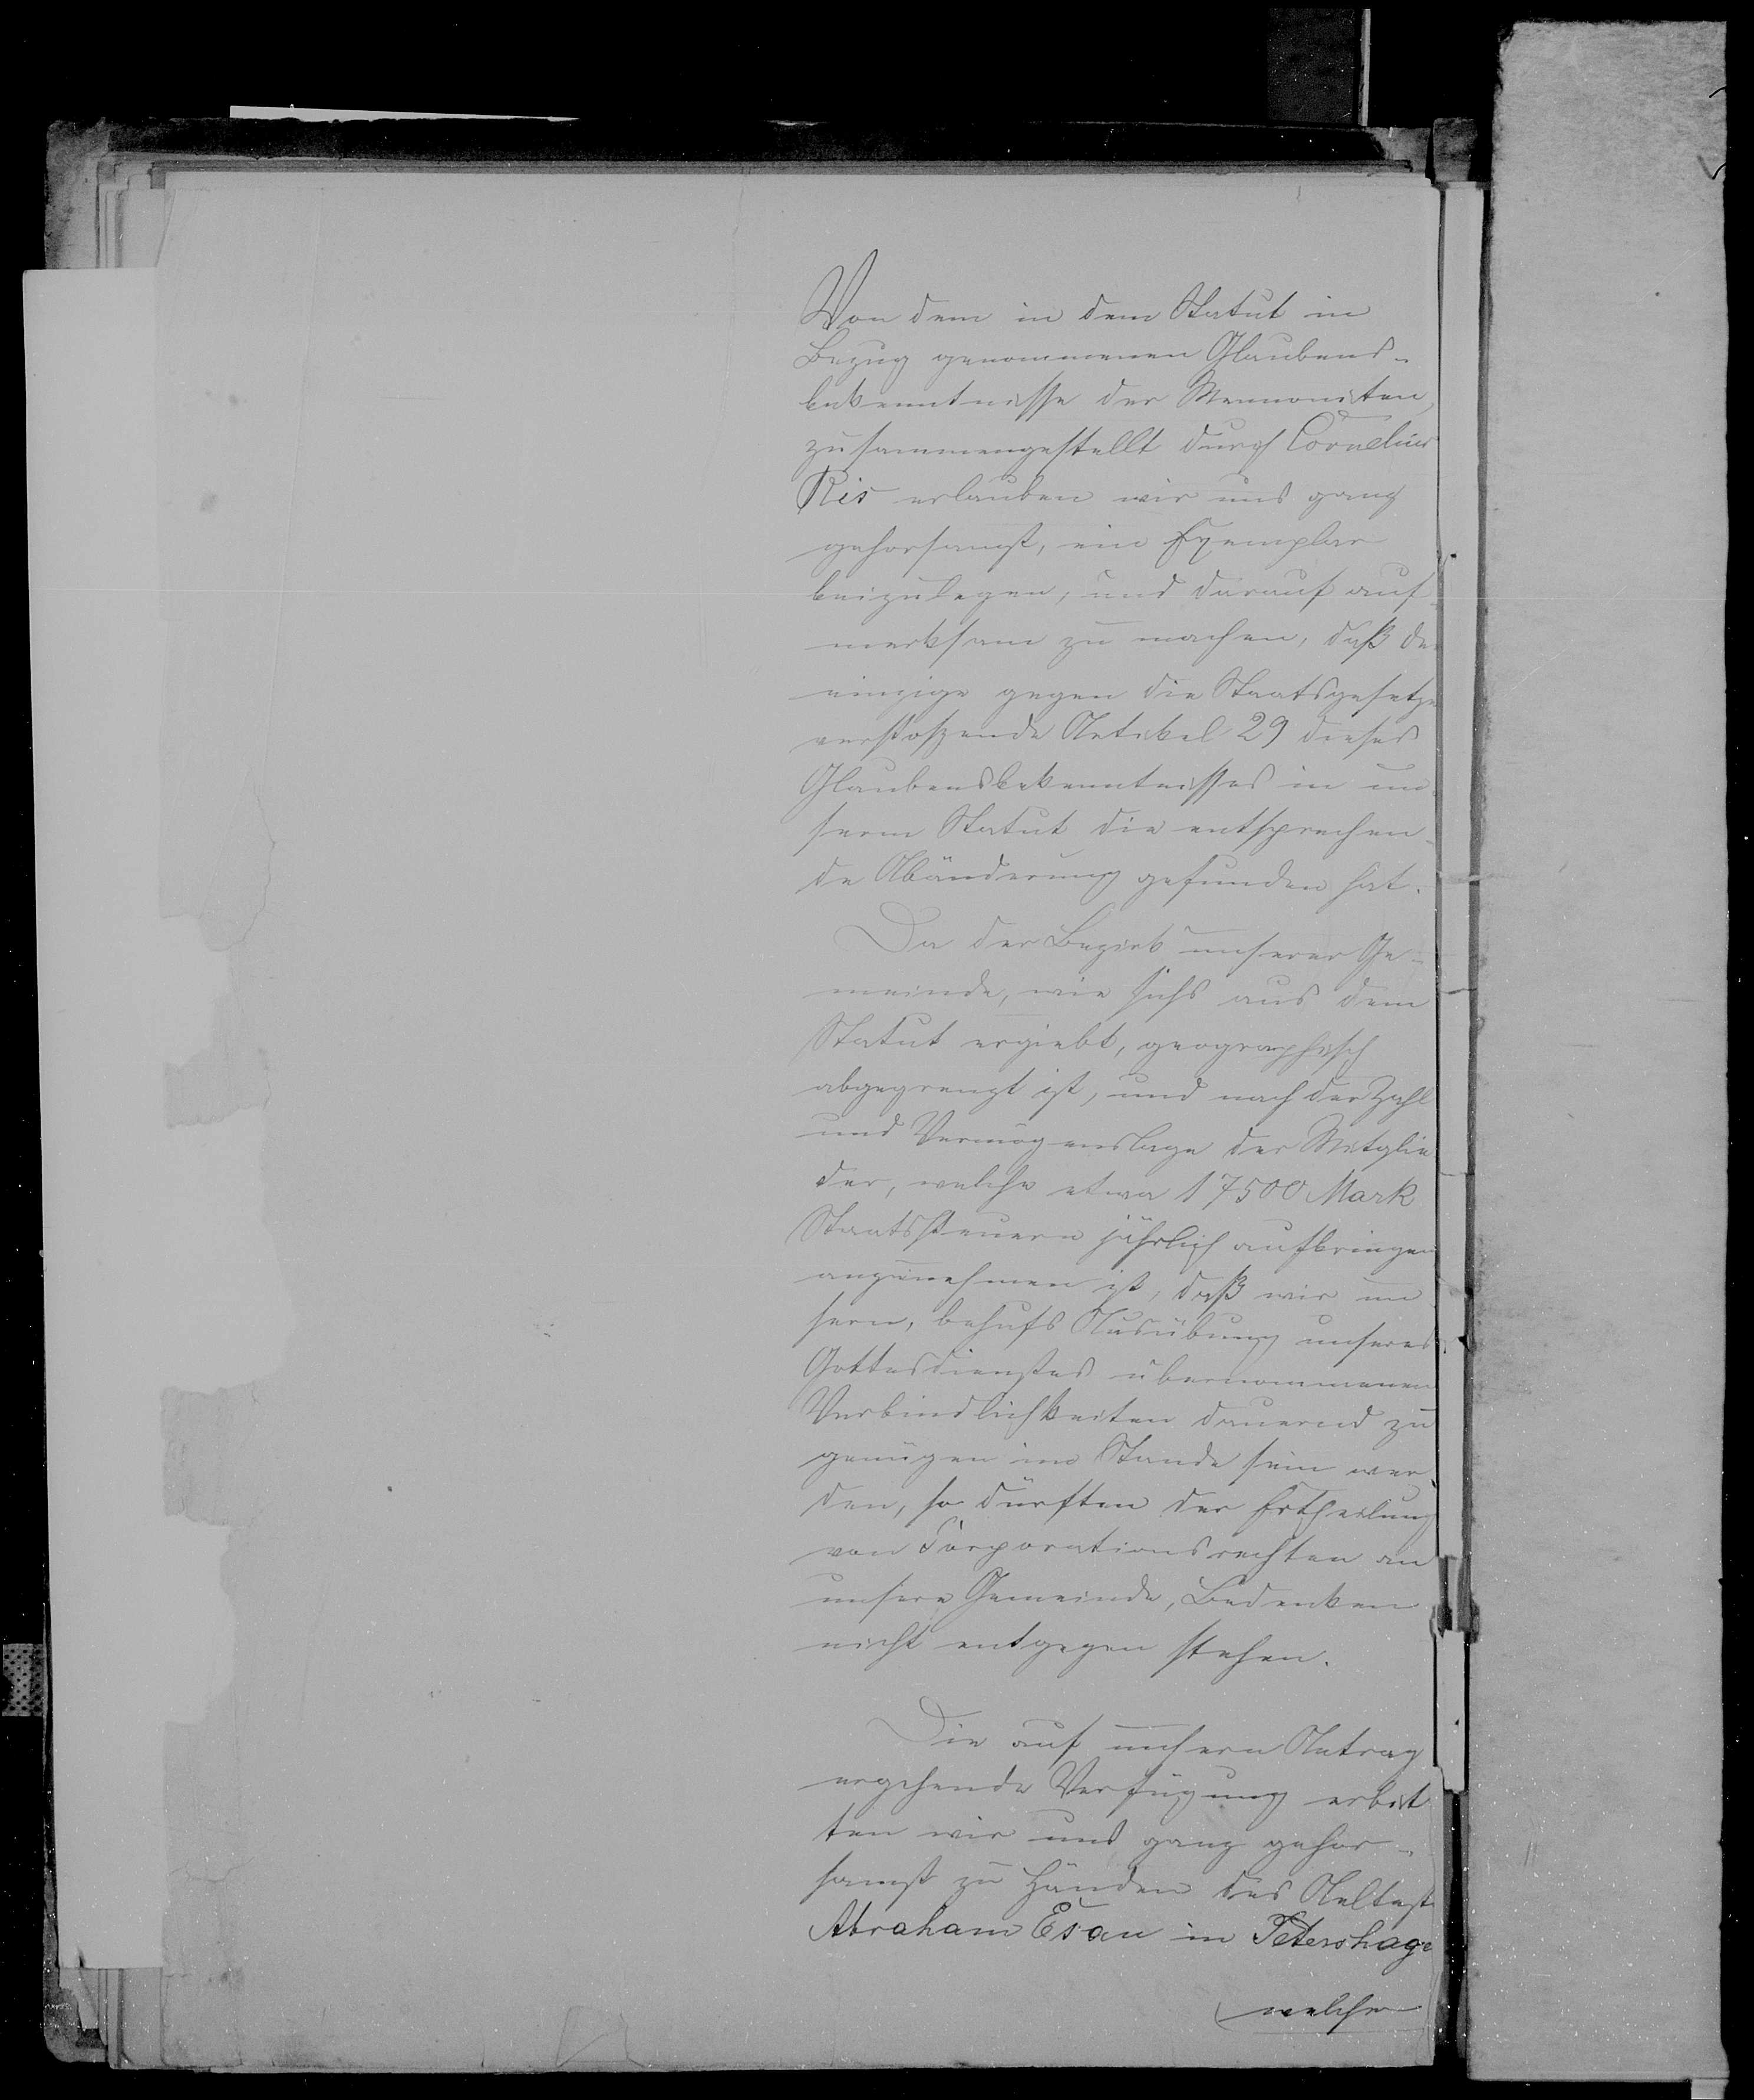 Von dem in dem Statut in
Bezug genommenen Glaubens-
bekenntnisse der Mennoniten,
zusammengestellt durch Cornelius
Ris erlauben wir uns ganz
gehorsamst, ein Exemplar
beizulegen, und darauf auf-
merksam zu machen, daß de
einzige gegen die Staatsgesetze
verstoßende Artikel 29 dieses
Glaubensbekenntnisses in un-
serm Statut die entsprechen-
de Abänderung gefunden hat.
Da der Bezirk unserer Ge-
meinde, wie sichs aus dem
Statut ergiebt, geographisch
abgegrenzt ist, und nach der Zahl
und Vermögenslage der Mitglie
der, welche etwa 17500 Mark
Staatssteuern jährlich aufbringen
anzunehmen ist, daß wir un
sern, behufs Ausübung unseres
Gottesdienstes übernommenen
Verbindlichkeiten dauernd zu
genügen im Stande sein wer-
den, so dürften der Ertheilung
von Corporationsrechten an
unsere Gemeinde, Bedenken
nicht entgegen stehen.
Die auf unsern Antrag
ergehende Verfügung erbit
ten wir uns ganz gehor-
samst zu Händen des Aeltest
Abraham Esau in Petershage
welcher